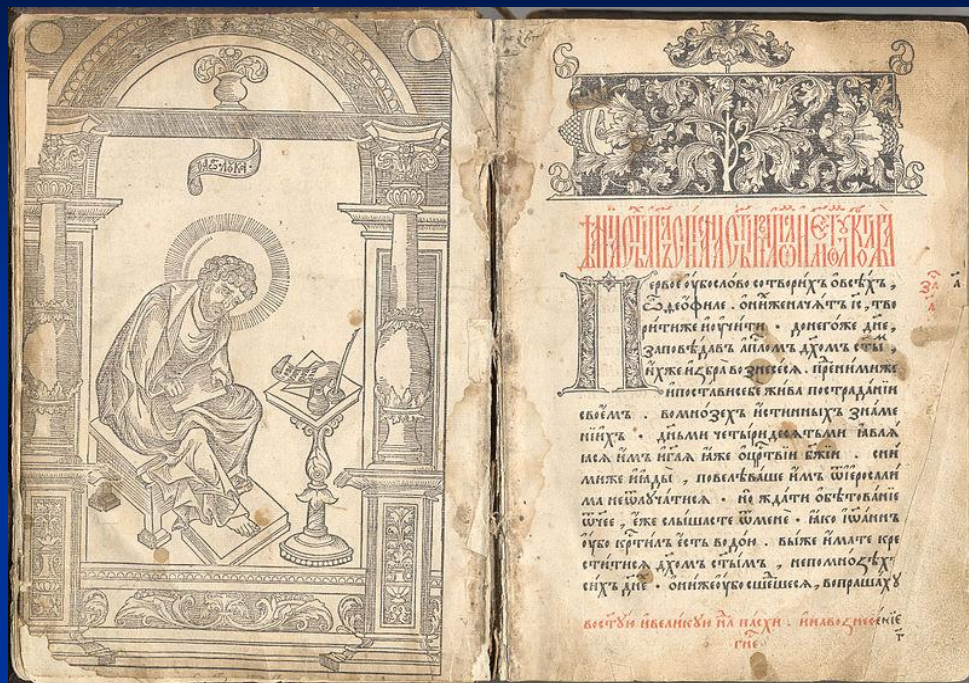 АП҃Л ЛꙋКА
Первое ᲂу҆бо сло́во сотвори́хъ о҆ всѣ́хъ ,
ѽ ѳео́филе . ѡ҆ ни́хже нача́тъ і҆с , тво
ри́тиже и҆ ᲂу҆чи́ти · донего́же дн҃е ,
заповѣ́давъ а҆пⷭ҇ломъ дх҃омъ ст҃ы ,
и҆́хже и҆збра̀ вознесе́сѧ . пре́д ни́миже
и҆ поста́ви себѐ жи́ва по страда́нїи
свое́мъ . во мно́зехъ и҆́стинныхъ зна́ме
нїихъ · дньми̑ четы́ридесѧтьми ꙗ҆влѧ́
ꙗсѧ и҆̀мъ и҆ гл҃ѧ ꙗ҆̀же о҆ црⷭ҇твїи бж҃їи . с ни́
миже и҆ ꙗ҆ды̀ , повелѣва́ше и҆̀мъ ѿ і҆еросали́
ма не ѿлꙋча́тисѧ · но жда́ти о҆бѣтова́нїе
ѿч҃ее , є҆́же слы́шасте ѿ менѐ · ꙗ҆́ко і҆ѡа́ннъ
ᲂу҆́бо крⷭ҇ти́лъ є҆́сть водо́ю . вы́же и҆́мате кре
сти́тисѧ дх҃омъ ст҃ы́мъ , не по мно́зѣхъ
си́хъ дн҃е · ѡ҆ни́же ᲂу҆̀бо сше́дшесѧ , вопраша́хꙋ
во ст҃ꙋю и҆ вели́кꙋю н҃л па́схи . и҆ на вознесе́нїе
гн҃е